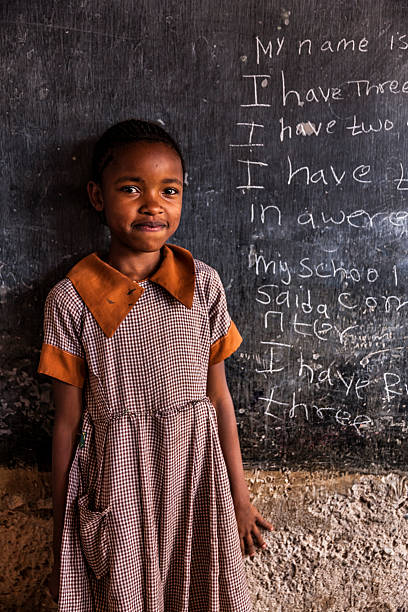 My name is
I have Three
I have two
I have t
in a were
my School
Said a cor
I have R
three